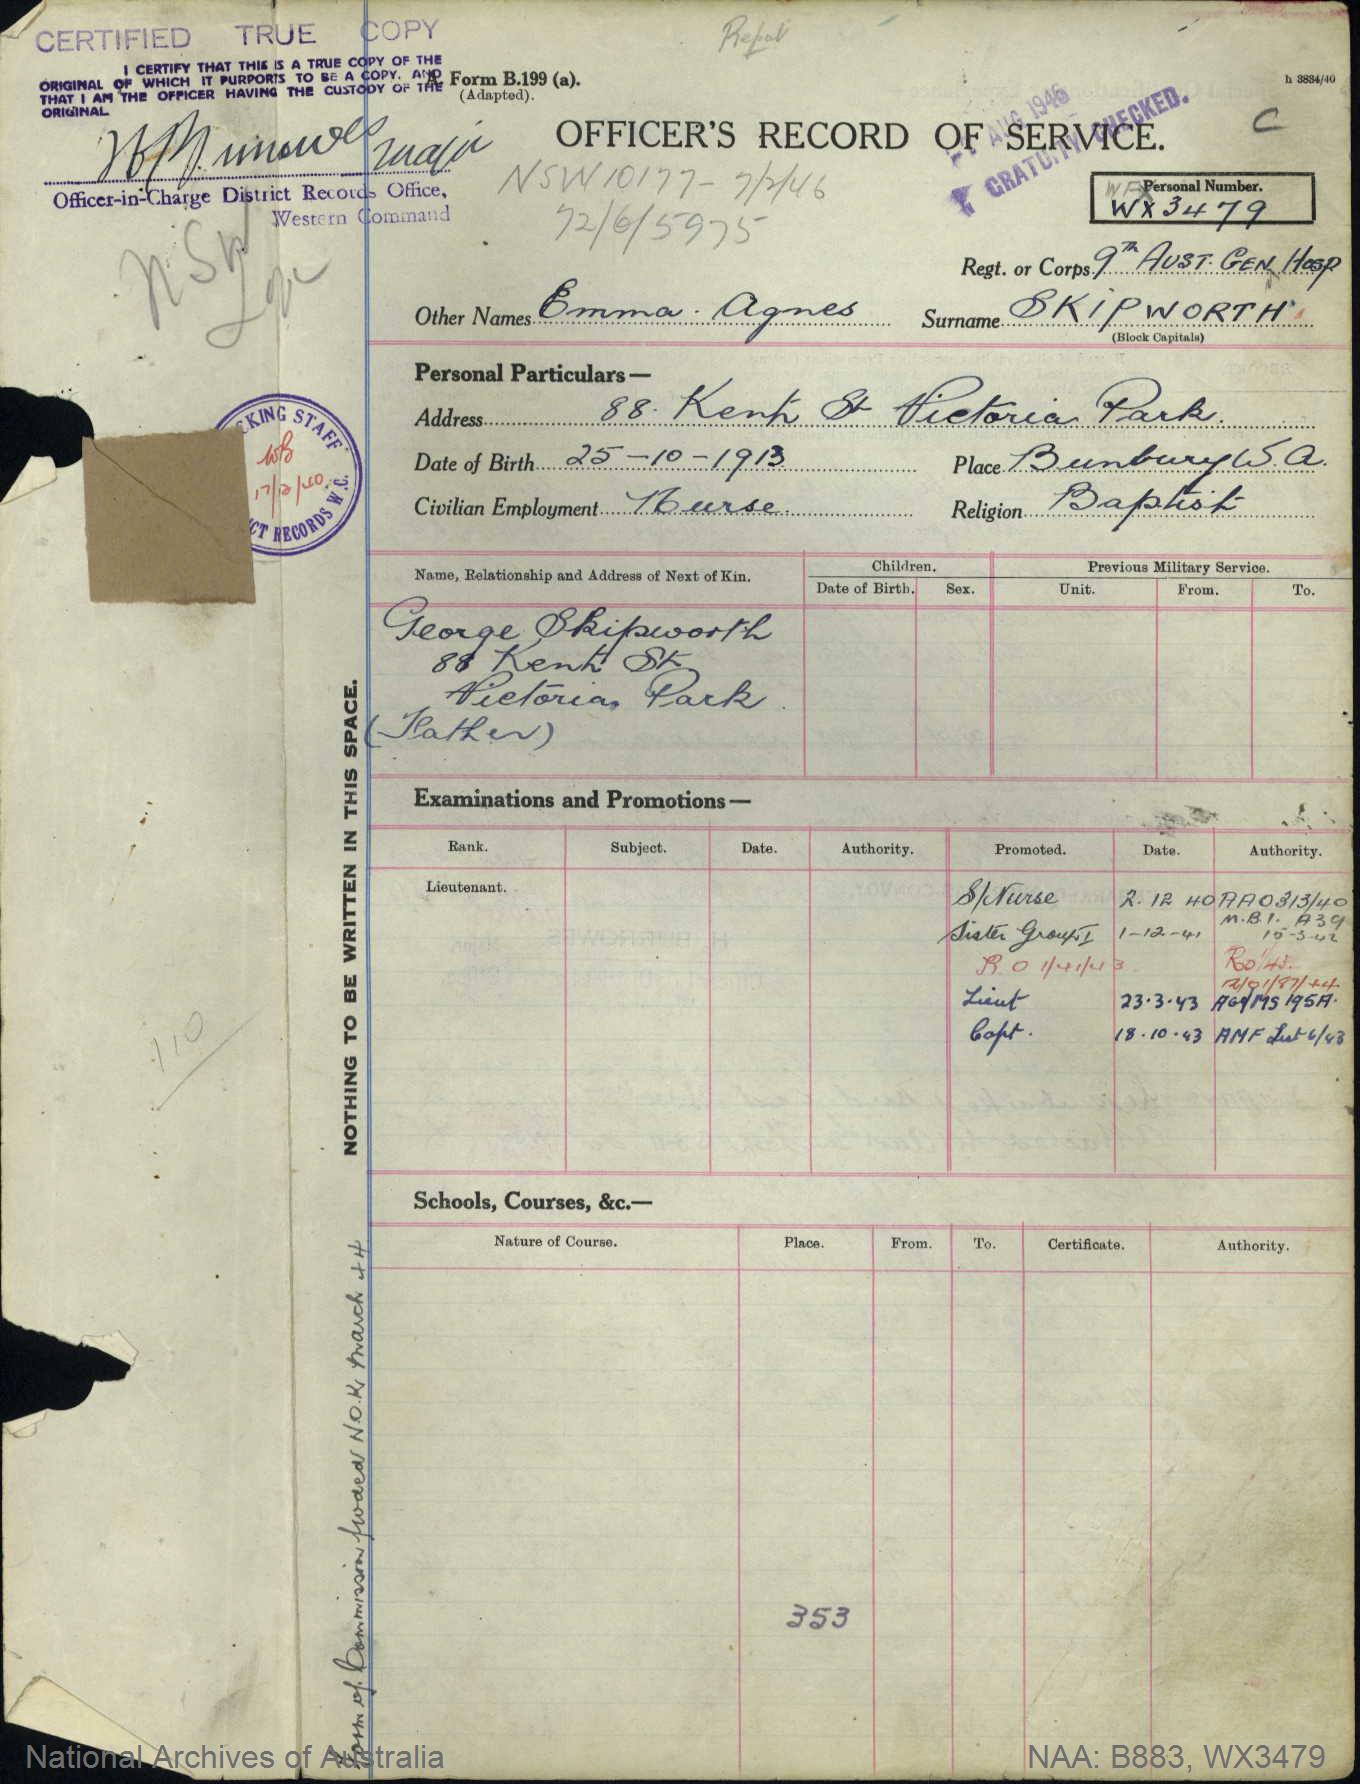 CERTIFIED TRUE COPY
I CERTIFY THAT THIS IS A TRUE COPY OF THE
ORIGINAL OF WHICH IT PURPORTS TO BE A COPY. AND
THAT I AM THE OFFICER HAVING THE CUSTODY OF THE
ORIGINAL
Major
Officer-in-Charge District Records Office,
Western Command
Repat
A. Form B.199 (a).
(Adapted).
h 3834/40
OFFICER'S RECORD OF SERVICE.
AUG 1946
GRATUITY CHECKED.
C
NSW10177 - 7/2/46
72/6/5975
NSW
Personal Number.
WX3479
Regt. or Corps 9th AUST. GEN. HOSP
Other Names Emma Agnes Surname SKIPWORTH
(Block Capitals)
Personal Particulars—
Address 88 Kent St Victoria Park.
Date of Birth 25-10-1913 Place Bunbury W.A.
Civilian Employment Nurse. Religion Baptist
CKING STAFF
WB
17/12/40.
CT RECORDS W.C.
Name, Relationship and Address of Next of Kin. Children. Previous Military Service.
Date of Birth. Sex. Unit. From. To.
George Skipworth
88 Kent St
Victoria Park
(Father)
NOTHING TO BE WRITTEN IN THIS SPACE.
Examinations and Promotions—
Rank. Subject. Date. Authority. Promoted. Date. Authority.
Lieutenant. S/Nurse 2.12 40 AAO313/40
Sister Group I 1-12-41 M.B.I. A39
15-3-42
R O 1/41/43 RO/43.
Lieut 23.3.43 AG9/MS 195A.
Capt. 18.10.43 AMF List 6/43
110
Schools, Courses, &c.—
Nature of Course. Place. From. To. Certificate. Authority.
353
Form of Commission fwded N.O.K. March 44
National Archives of Australia
NAA: B883, WX3479